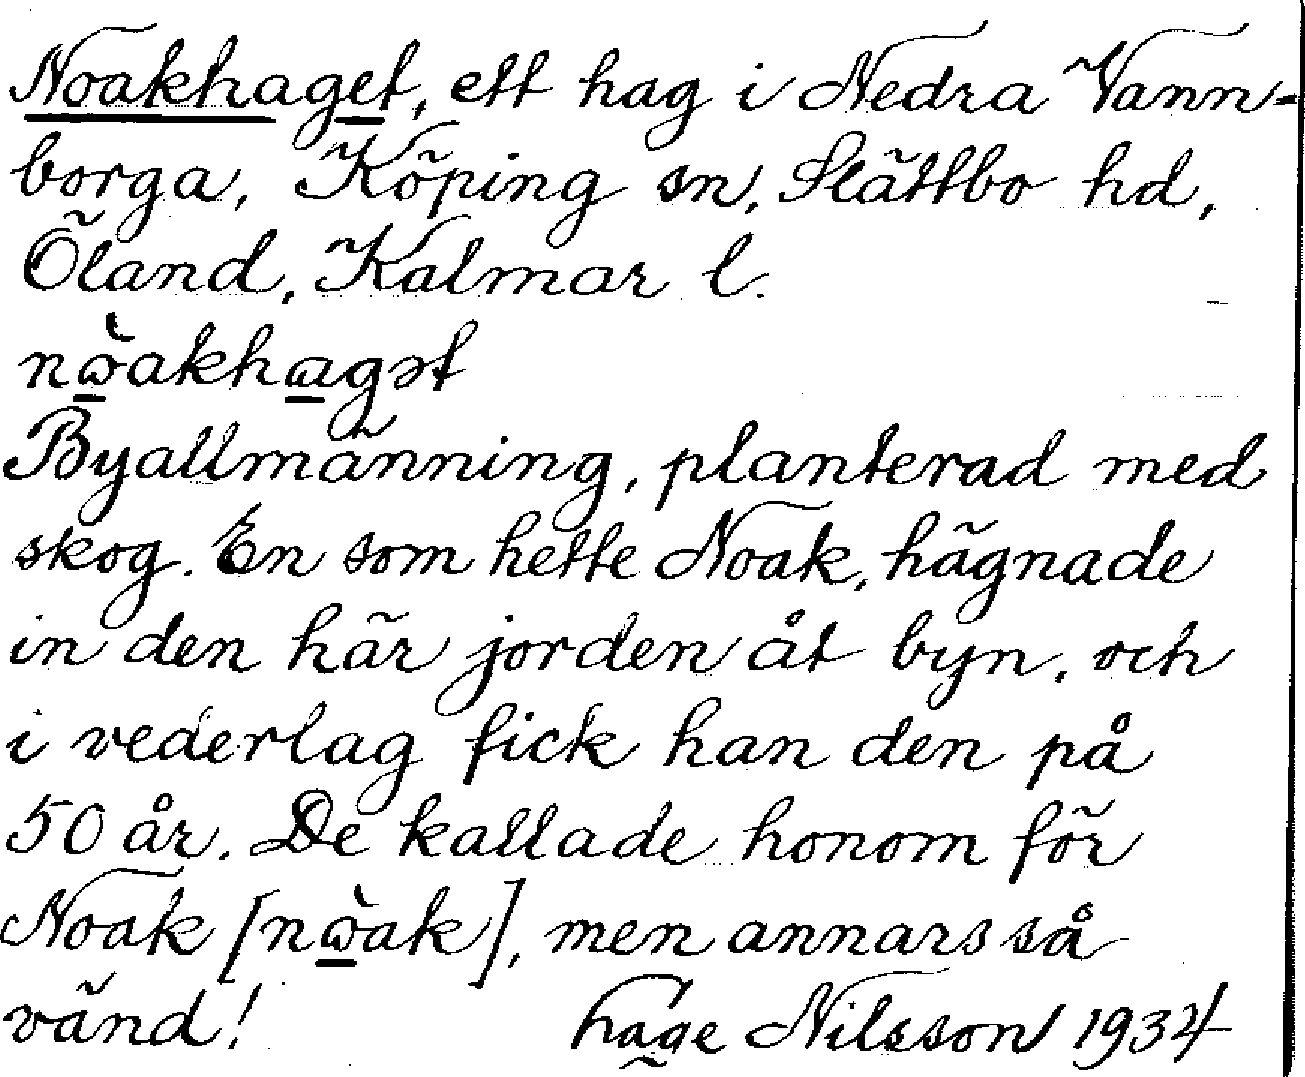 Noakhaget, ett hag i Nedra Vann-
borga, Köping sn, Slättbo hd,
Öland, Kalmar l.
nὼakhagət
Byallmänning, planterad med
skog. En som hette Noak, hägnade
in den här jorden åt byn, och
i vederlag fick han den på
50 år. De kallade honom för
Noak [nὼak], men annars så
vänd! Nilsson 1934